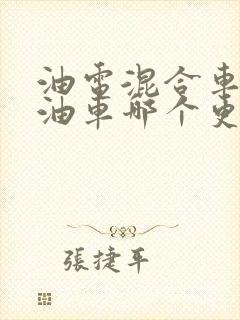 油電混合車
油車哪个更
張捷平